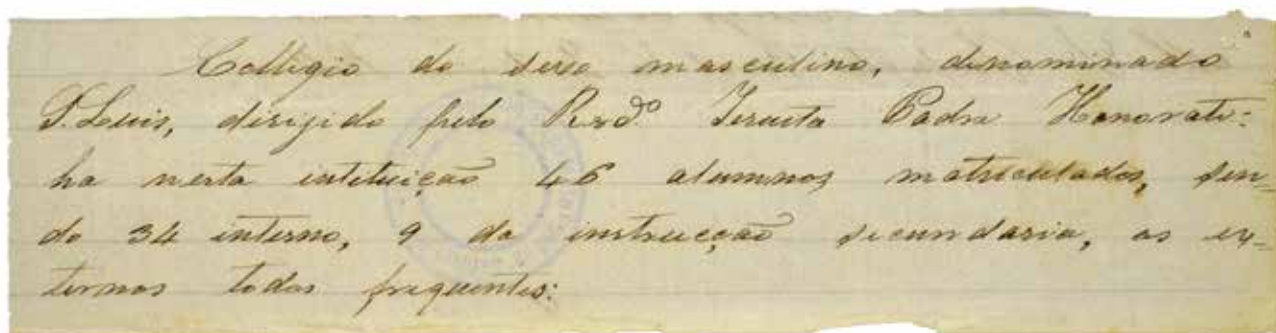 Collegio do sexo masculino, denominado
S. Luis, dirigido pelo Revdº Jesuita Padre Honorati:
ha nesta intituição 46 alumnos matriculados, sen-
do 34 interno, 9 da instrucção secundaria, os ex-
ternos todos frequentes: